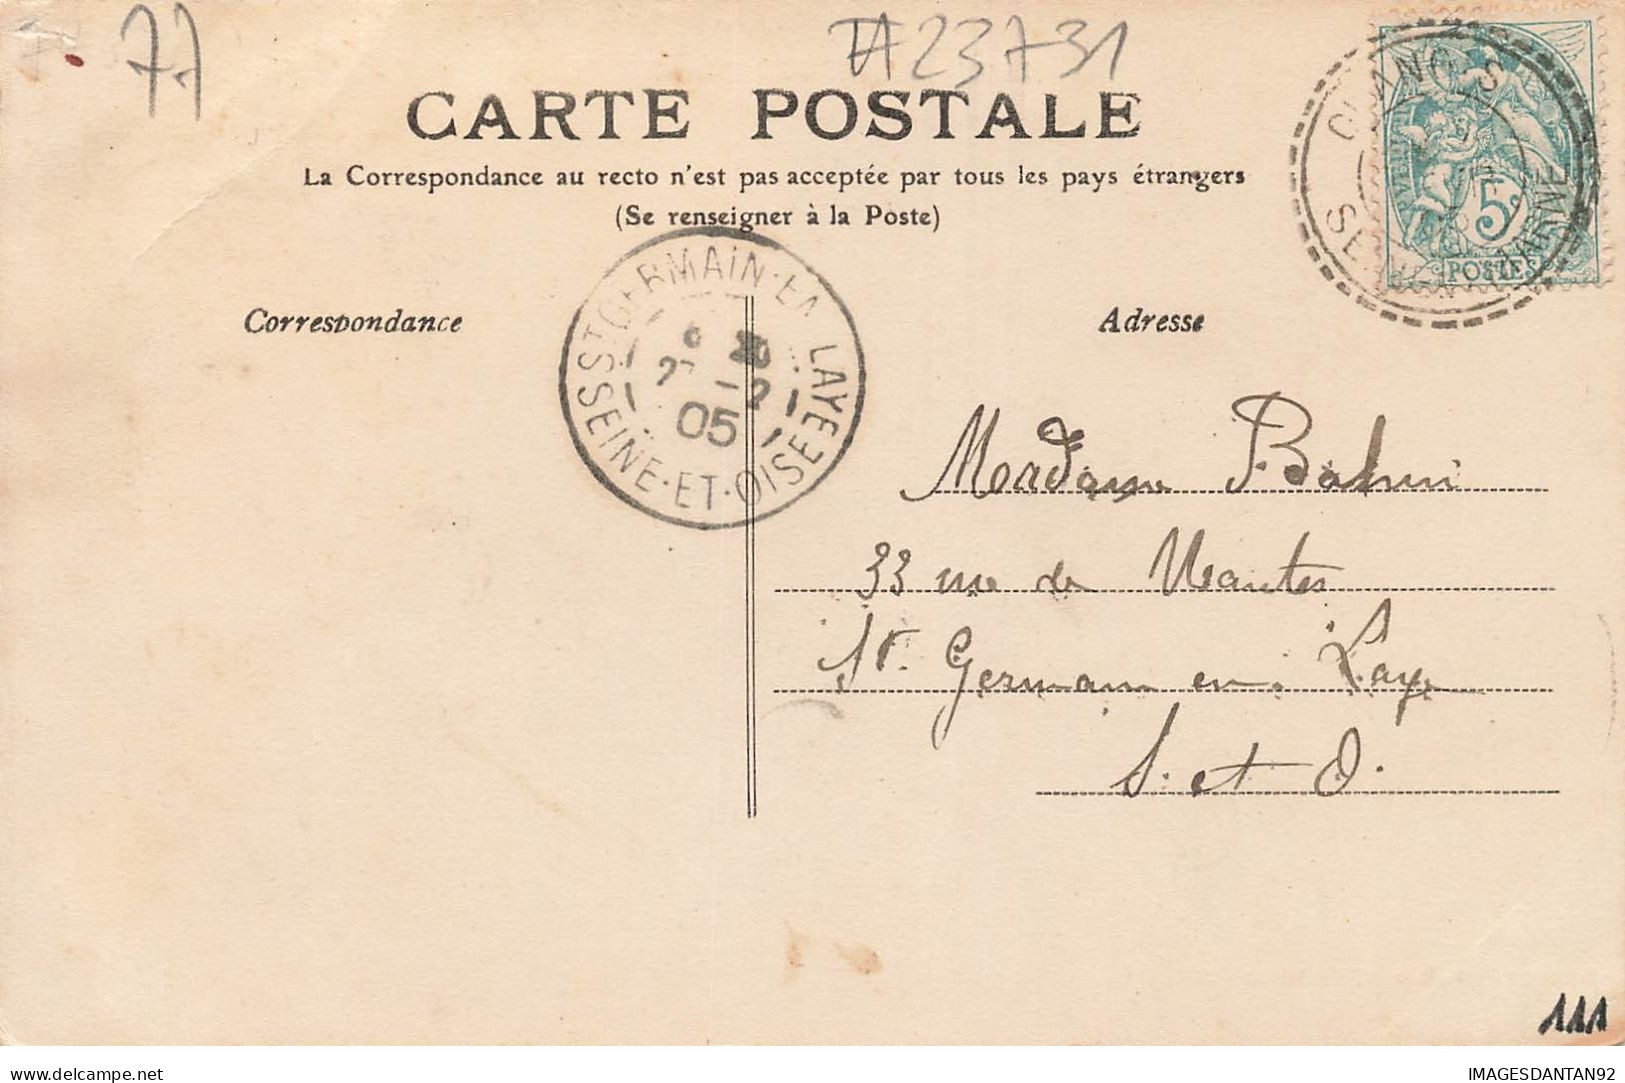 77
TA 23731
CARTE POSTALE
La Correspondance au recto n'est pas acceptée par tous les pays étrangers
(Se renseigner à la Poste)
5c
POSTES
ST GERMAIN-EN LAYE
20
05
SEINE-ET-OISE
Correspondance
Adresse
Madame
33 rue de Nantes
St. Germain en Laye
S. et O.
111
delcampe.net
IMAGESDANTAN92